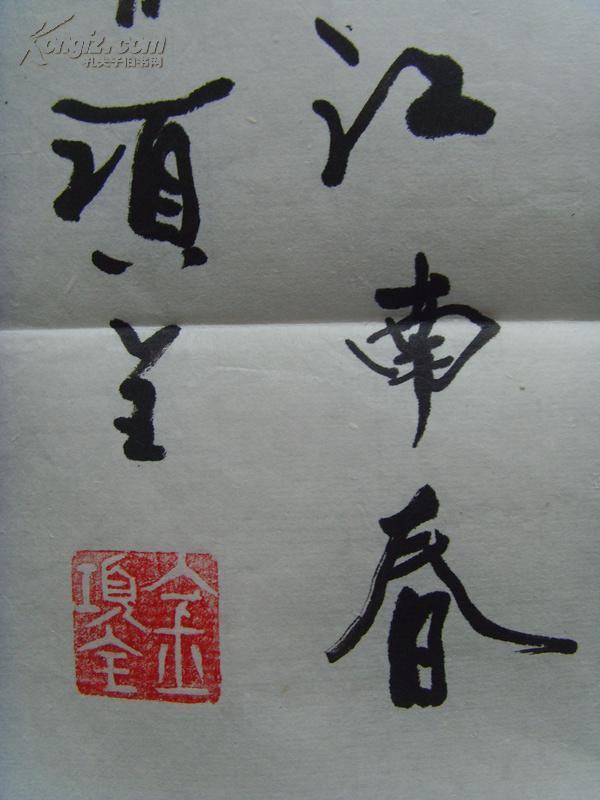 江南春
項全
金項全
Kongfz.com
孔夫子旧书网